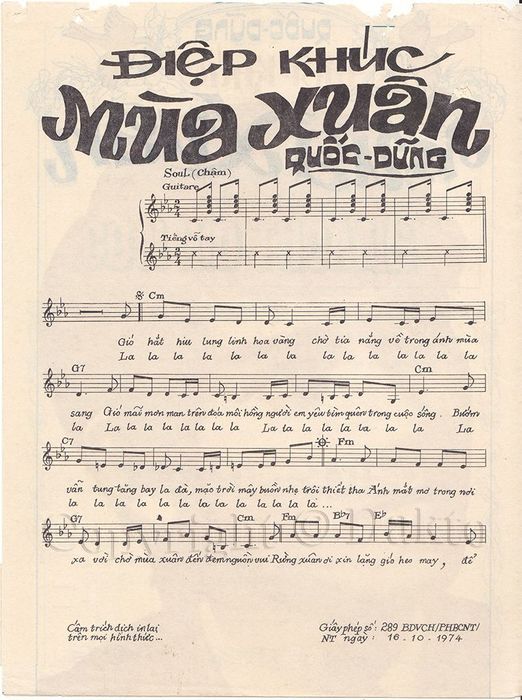 ĐIỆP KHÚC
MÙA XUÂN
QUỐC-DŨNG
Soul (Chậm)
Guitare
2/4
Tiếng vỗ tay
2/4
Cm
Gió hắt hiu lung linh hoa vàng chờ tia nắng về trong ánh mùa
La la la la la la la la la la la la la
G7 Cm
sang Gió mãi mơn man trên đóa môi hồng người em yêu tìm quên trong cuộc sống. Bướm
la La la la la la la la La la la la la la la La
C7 Fm
vẫn tung tăng bay la đà, mặc trời mây buồn nhẹ trôi thiết tha Ánh mắt mơ trong nơi
la la la la la la la la la la la la ...
G7 Cm Fm Bb7 Eb
xa vời chờ mùa xuân đến đem nguồn vui Rừng xuân ơi xin lắng gió heo may, để
Cấm trích dịch in lại
trên mọi hình thức...
Giấy phép số: 289 BDVCH/PHBCNT/
NT ngày: 16-10-1974